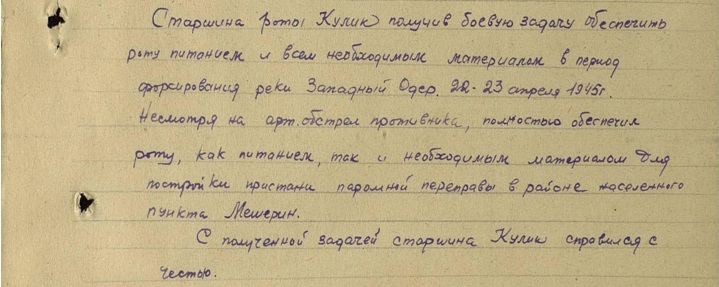 Старшина роты Кулик получив боевую задачу обеспечить
роту питанием и всем необходимым материалом в период
форсирования реки Западный Одер. 22-23 апреля 1945г.
Несмотря на арт.обстрел противника, полностью обеспечил
роту, как питанием, так и необходимым материалом для
постройки пристани паромной переправы в районе населенного
пункта Мешерин.
С полученной задачей старшина Кулик справился с
честью.